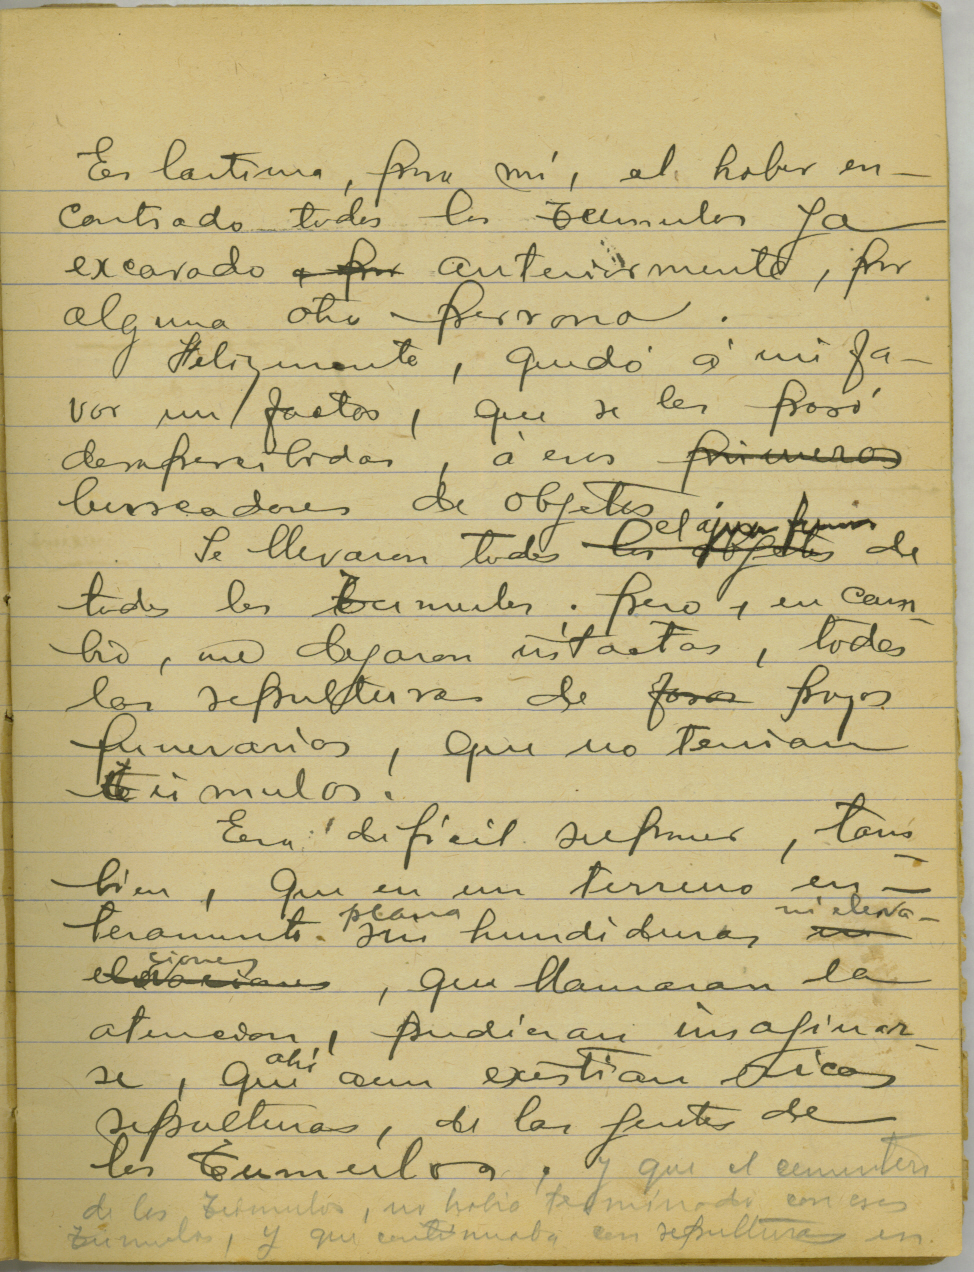 Es lastima, para mi, el haber en-
contrado todos los tumulos ya
excavado , por anteriormente, por
alguna otra persona.
Felizmente, quedó á mi fa-
vor un factos, que se les pasó
desapercibidas, á esos primeros
buscadores de objetos
Se llevaron todo los objetos el ajuar de
todos los túmulos. Pero, en cam-
bio, me dejaron intactas, todas
las sepulturas de fosas pozos
funerarios, que no tenian
túmulos.
Era dificil suponer, tam
bien, que en un terreno en-
teramente plano sin hundiduras ni eleva-
ciones elevaciones, que llamaran la
atencion, pudieran imaginar-
se, que ahi aun existian ricas
sepulturas, de las gentes de
los túmulos, y que el cementerio
de los túmulos, no habia terminado con esos
túmulos, y que continuaba con sepulturas en